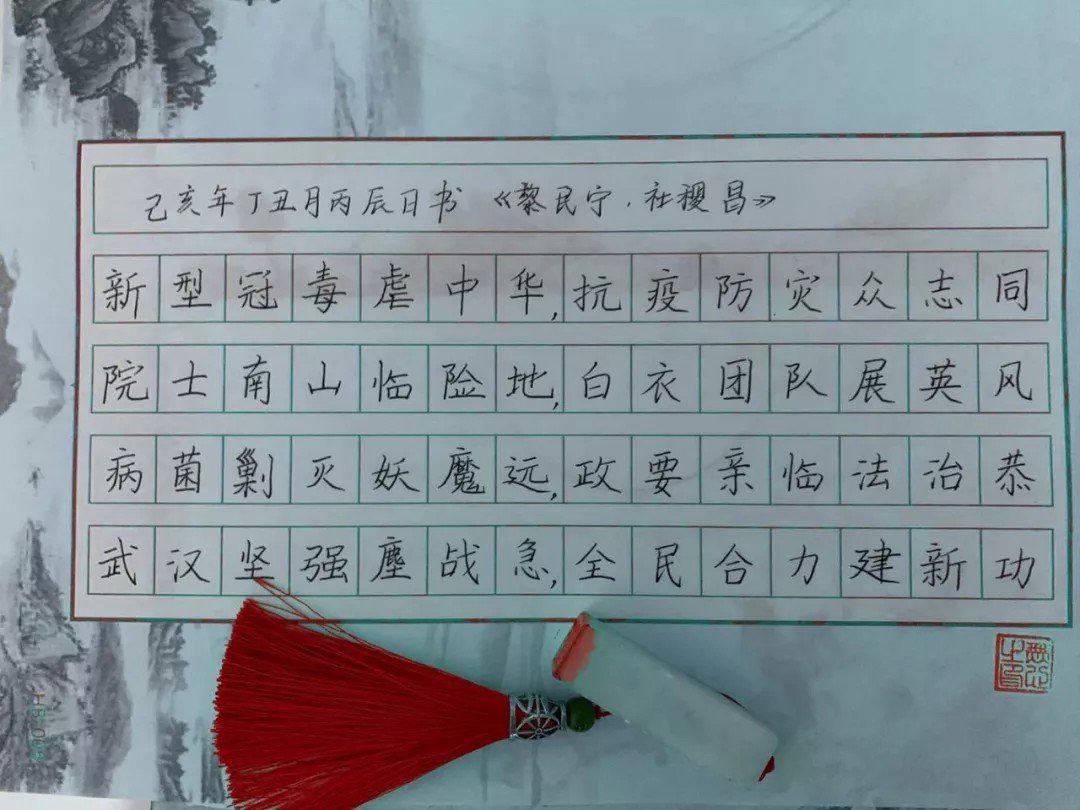 己亥年丁丑月丙辰日书《黎民宁.社稷昌》
新型冠毒虐中华,抗疫防灾众志同
院士南山临险地,白衣团队展英风
病菌剿灭妖魔远,政要亲临法治恭
武汉坚强鏖战急,全民合力建新功